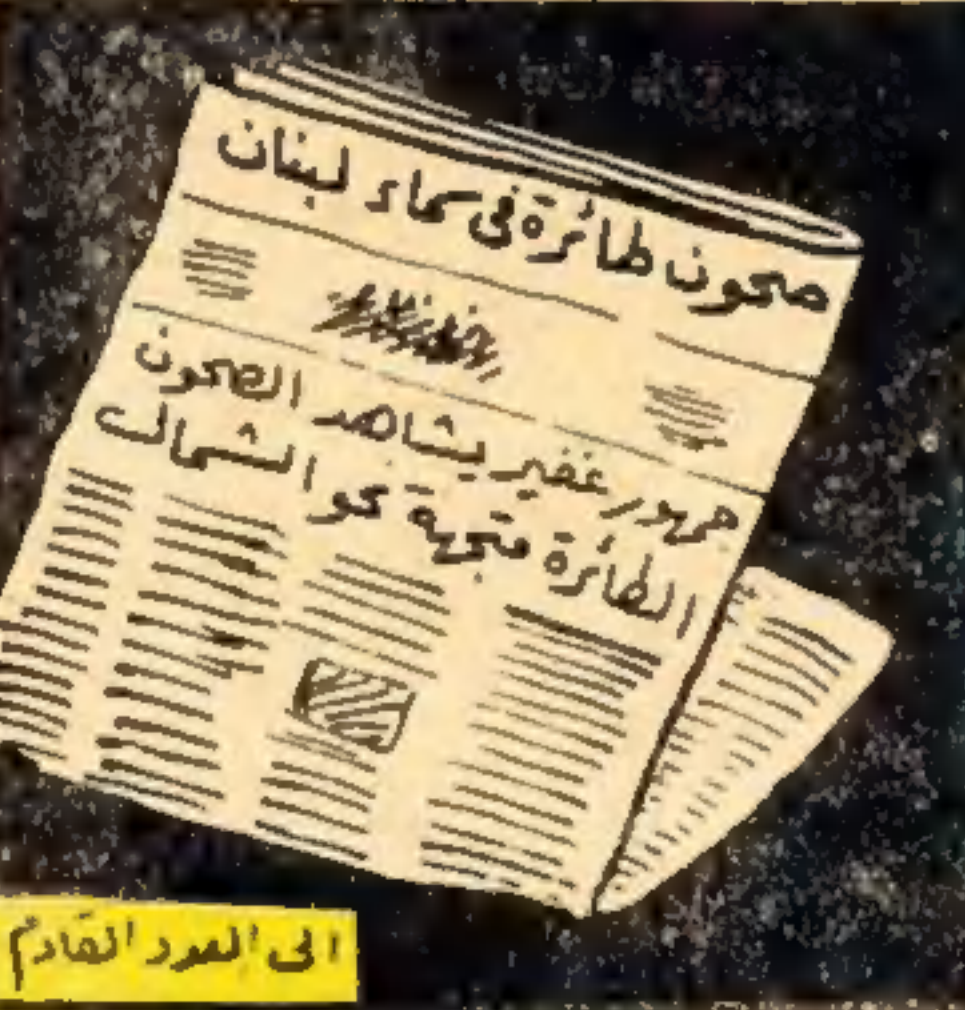 صحون طائرة في سماء لبنان
جمهور غفير يشاهد الصحون
الطائرة متجهة نحو الشمال
الى العدد القادم